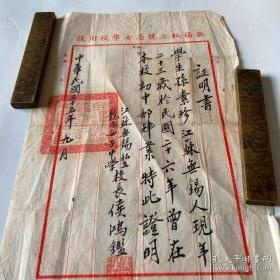 無錫私立競志女學校用牋
証明書
學生孫素珍江蘇無錫人現年
二十三歲於民國二十六年曾在
本校初中部畢業特此證明
江蘇無錫私立
競志女子中學
校長侯鴻鑑
中華民國三十五年九月